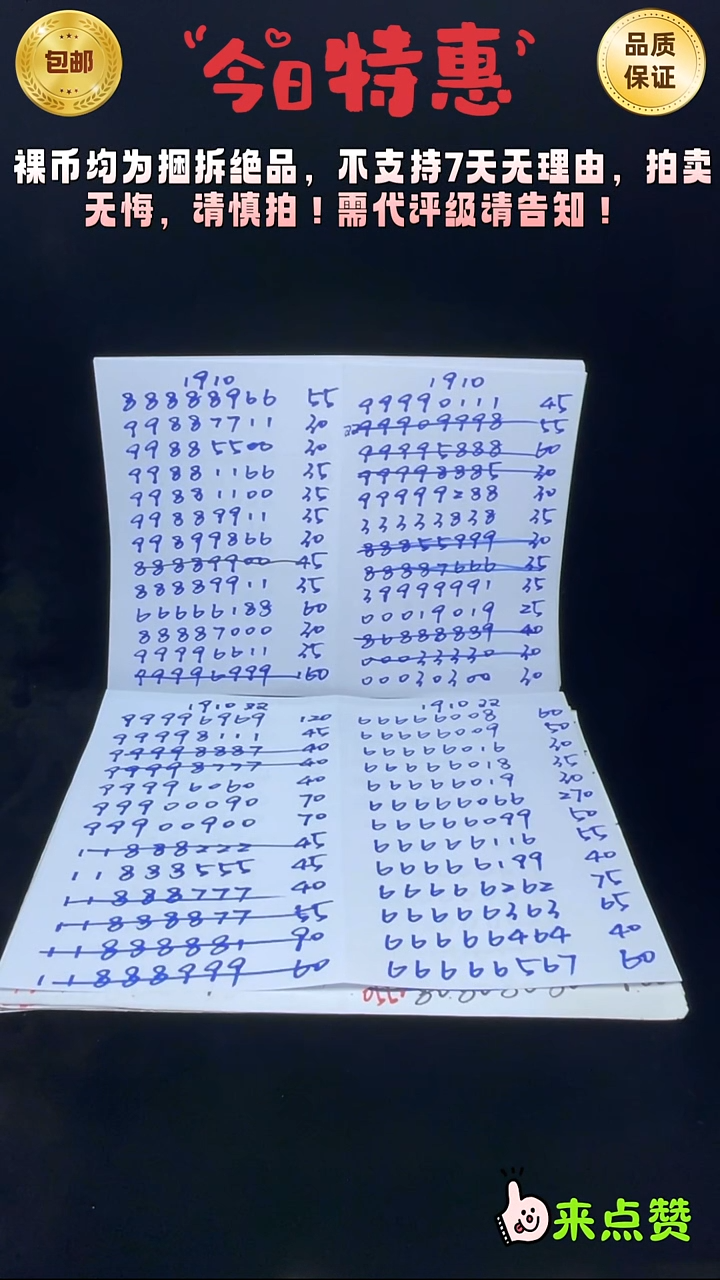 包邮
“今日特惠”
品质
保证
裸币均为捆拆绝品，不支持7天无理由，拍卖
无悔，请慎拍！需代评级请告知！
1910
88888966 55
99887711 30
99885500 30
99881166 35
99881100 35
99889911 35
99899866 30
88889900 45
88889911 35
66666188 60
88887000 30
99996611 35
99996999 160
1910
99990111 45
99909998 55
99995888 60
99998885 30
99999288 30
33333838 35
88855999 30
88887666 35
39999991 35
00019019 25
86888889 40
00033330 30
00030300 30
1910 22
99996969 120
99998111 45
99998887 40
99998777 40
99996060 40
99900090 70
99900900 70
11888222 45
11888555 45
11888777 40
11888877 55
11888881 90
11888999 60
1910 22
66666008 60
66666009 50
66666016 30
66666018 35
66666019 30
66666066 270
66666099 50
66666116 55
66666199 40
66666262 75
66666363 65
66666464 40
66666567 60
来点赞